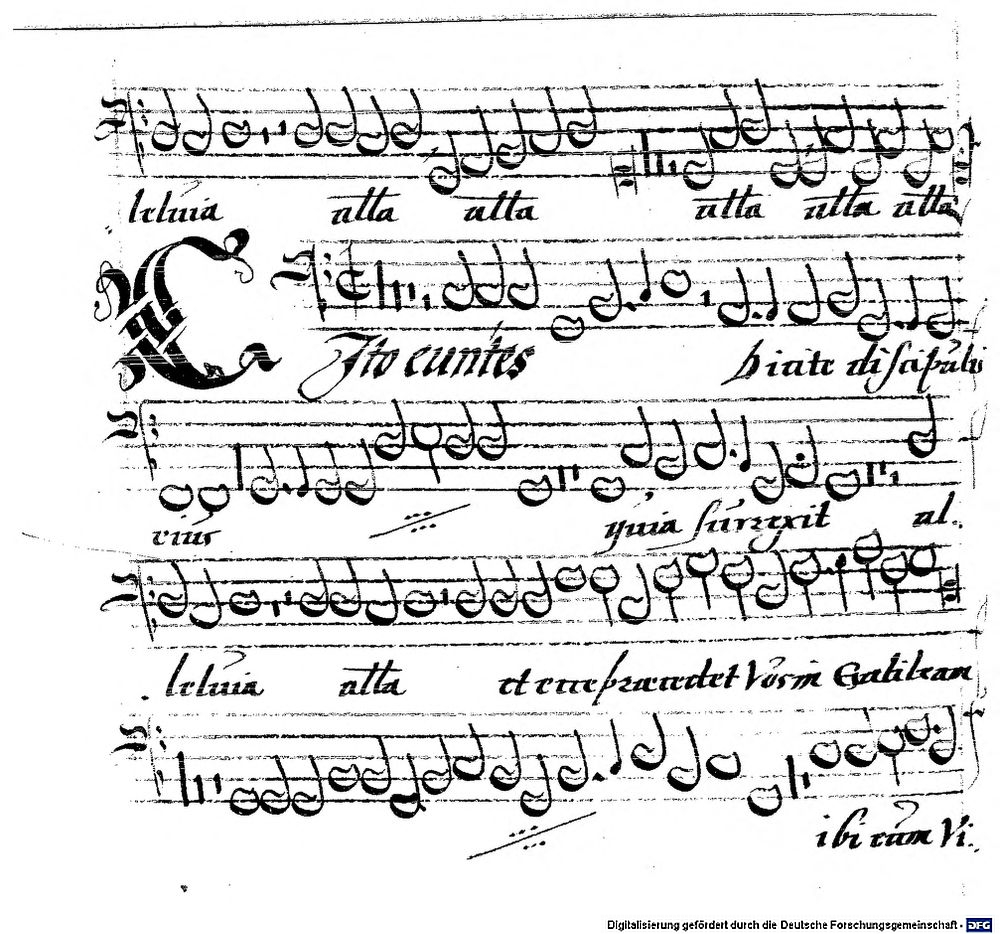 leluia alla alla alla alla alla
Cito euntes Dicite discipulis
eius quia surrexit al.
leluia alla et ecce præcedet Vos in Galileam
ibi eum Vi.
Digitalisierung gefördert durch die Deutsche Forschungsgemeinschaft - DFG